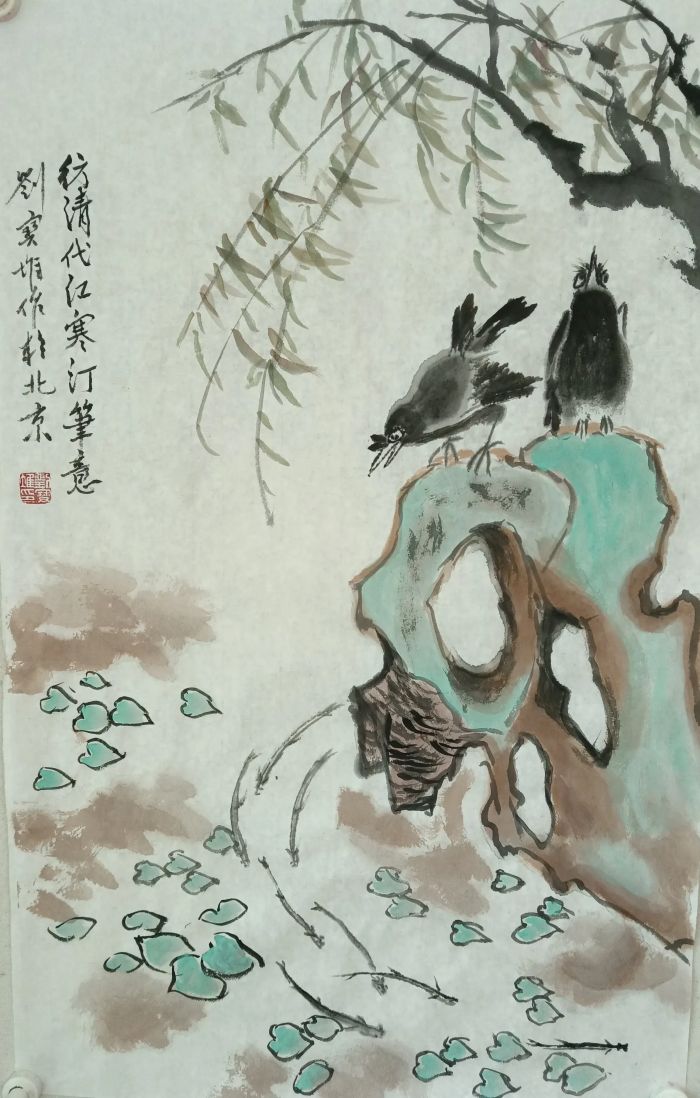 彷清代江寒汀筆意
劉寳堆作於北京